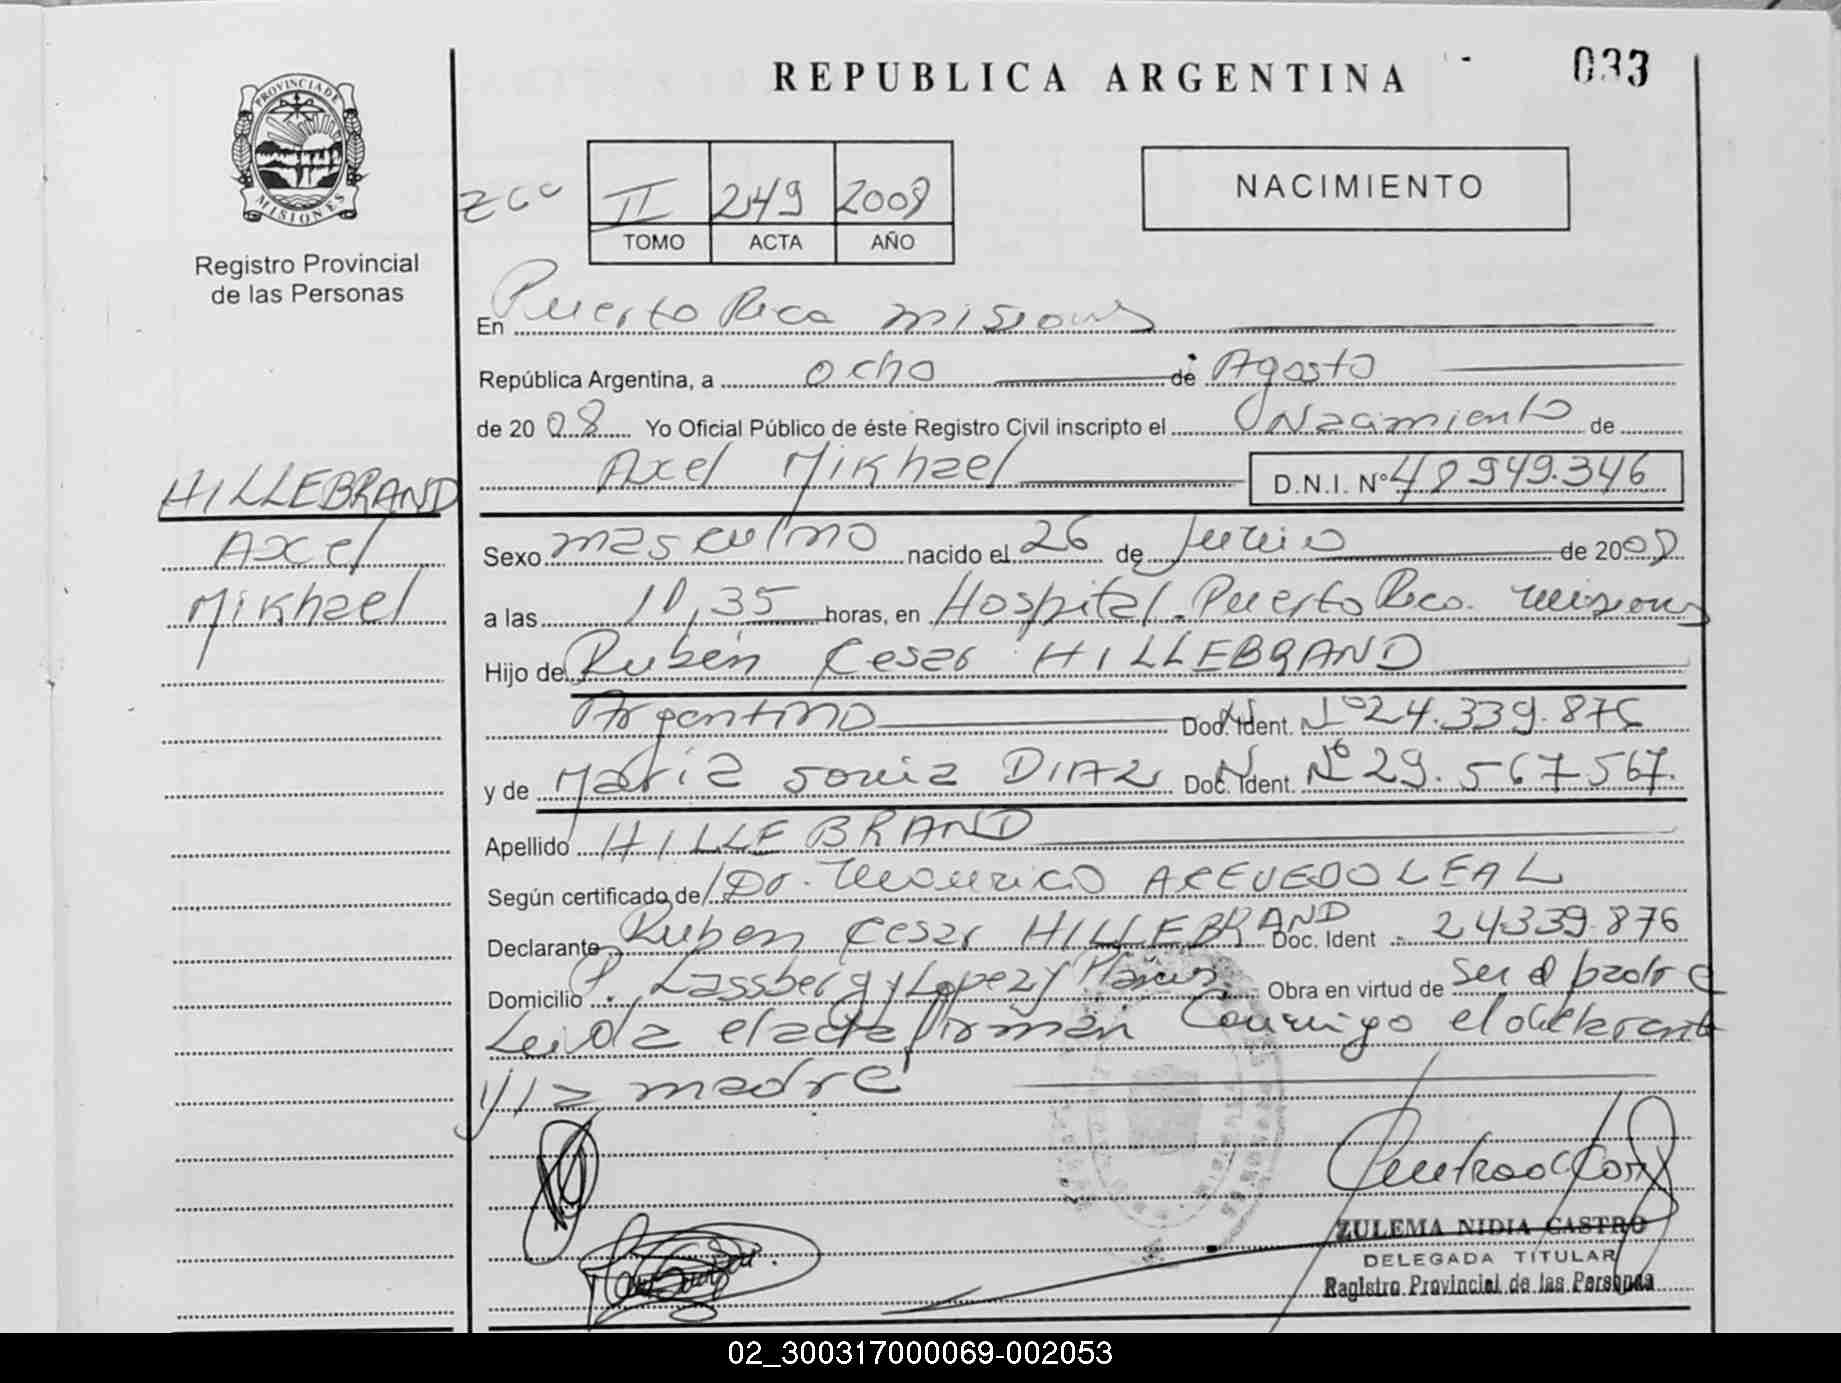 REPUBLICA ARGENTINA
033
PROVINCIA DE
MISIONES
Registro Provincial
de las Personas
II 249 2008
TOMO ACTA AÑO
NACIMIENTO
En Puerto Rico Misiones
República Argentina, a ocho de Agosto
de 2008 Yo Oficial Público de éste Registro Civil inscripto el Nacimiento de
Axel Mikhael D.N.I. Nº 48949.346
HILLEBRAND
Axel
Mikhael
Sexo masculino nacido el 26 de Junio de 2008
a las 10,35 horas, en Hospital. Puerto Rico. Misiones
Hijo de Rubén Cesar HILLEBRAND
Argentino Doc. Ident. Nº 24.339.876
y de Maria Sonia DIAZ Doc. Ident. Nº 29.567567.
Apellido HILLEBRAND
Según certificado de Dr. Mauricio ACEVEDO LEAL
Declarante Ruben Cesar HILLEBRAND Doc. Ident 24339.876
Domicilio Lassberg y Lopez y Planes Obra en virtud de ser el padre
Leida el acta firman conmigo el declarante
y la madre
ZULEMA NIDIA CASTRO
DELEGADA TITULAR
Registro Provincial de las Personas
02_300317000069-002053